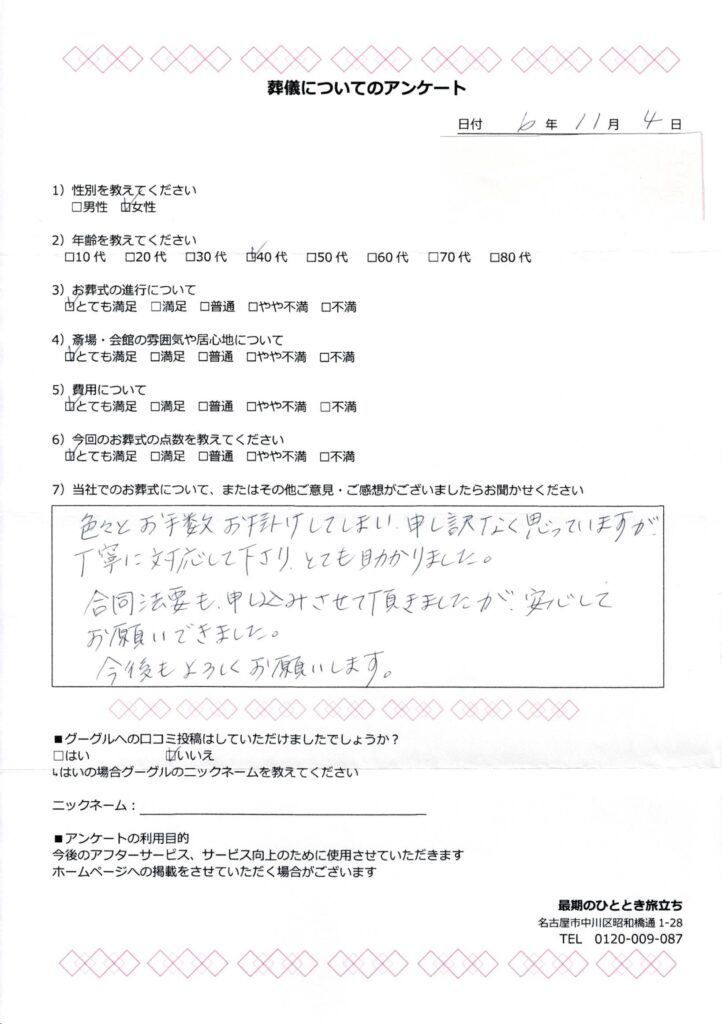 葬儀についてのアンケート
日付 6 年 11 月 4 日
1）性別を教えてください
□男性 ☑女性
2）年齢を教えてください
□10 代 □20 代 □30 代 ☑40 代 □50 代 □60 代 □70 代 □80 代
3）お葬式の進行について
☑とても満足 □満足 □普通 □やや不満 □不満
4）斎場・会館の雰囲気や居心地について
☑とても満足 □満足 □普通 □やや不満 □不満
5）費用について
☑とても満足 □満足 □普通 □やや不満 □不満
6）今回のお葬式の点数を教えてください
☑とても満足 □満足 □普通 □やや不満 □不満
7）当社でのお葬式について、またはその他ご意見・ご感想がございましたらお聞かせください
色々とお手数お掛けしてしまい、申し訳なく思っていますが、
丁寧に対応して下さり、とても助かりました。
合同法要も、申し込みさせて頂きましたが、安心して
お願いできました。
今後もよろしくお願いします。
■グーグルへの口コミ投稿はしていただけましたでしょうか？
□はい ☑いいえ
↳はいの場合グーグルのニックネームを教えてください
ニックネーム：
■アンケートの利用目的
今後のアフターサービス、サービス向上のために使用させていただきます
ホームページへの掲載をさせていただく場合がございます
最期のひととき旅立ち
名古屋市中川区昭和橋通 1-28
TEL 0120-009-087